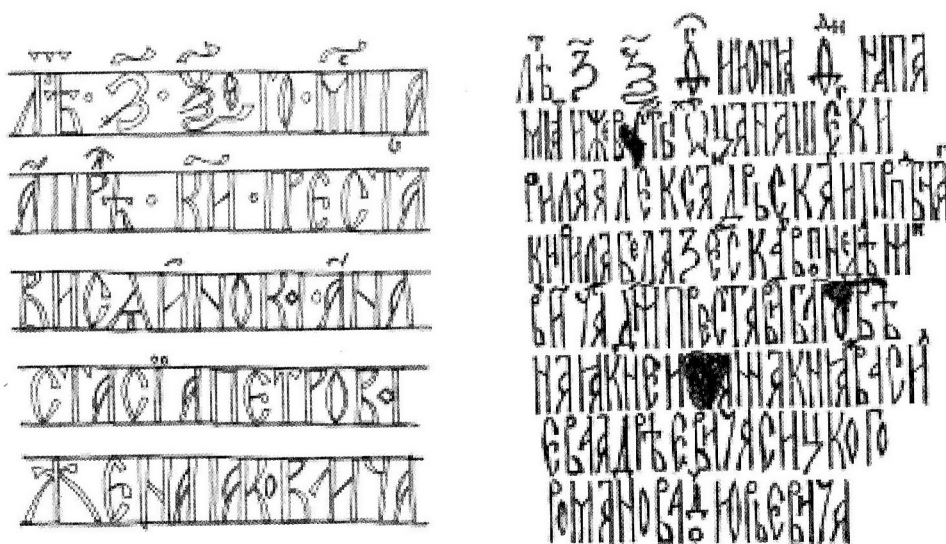 ЛѢТ · З · ѮѲ ГО · МЦА
АПРѢЛ · КИ · ПРЕСТА
ВИСѦ ИНОКА АНА
СТАСЇА ПЕТРОВА
ЖЕНА ꙖКОВИЧА
ЛѢТ З Ѯ Д ИЮНЯ Д НАПА
МЯТ ИЖЕ ВО СТЫ ѾЦА НАШЕГ КИ
РИЛА АЛЕКСАДРЬСКАГ И ПРПДБНАГ
КИРИЛА БЕЛАЗЕРСКАГ В ПНЕДЕ
ВЕЧЯ ДНИ ПРЕСТАВИ
НАЯ КНЕИ КНЯ ВАСИЛ
ЕВА АДРѢЕВИЧЯ СИЦКОГО
РОМАНОВА ДО ЮРЬЕВИЧА